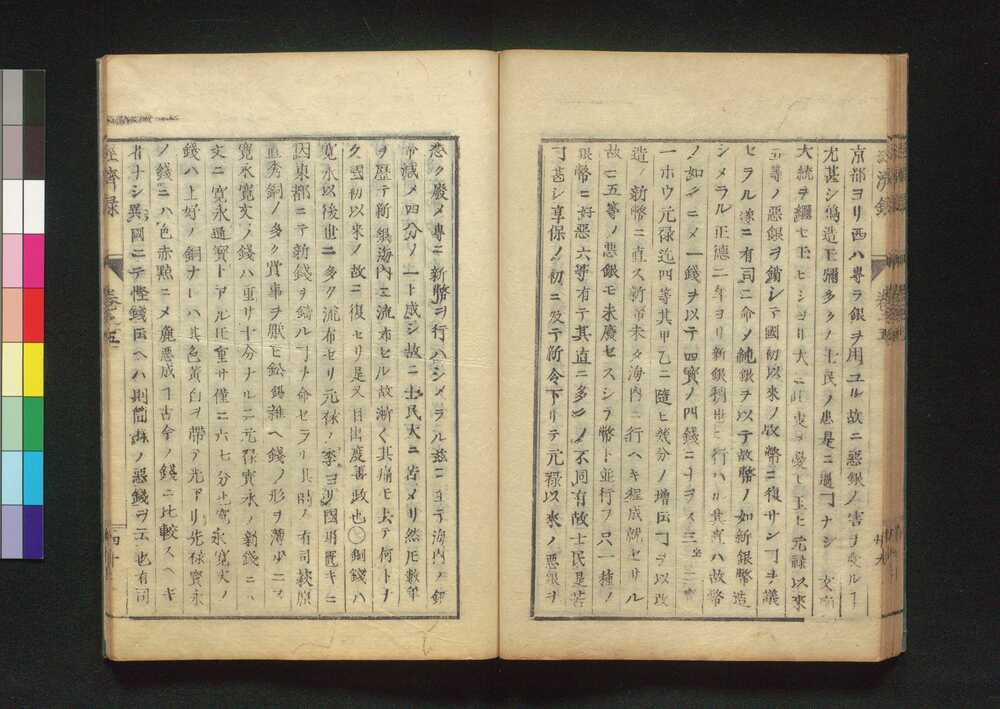 京都ヨリ西ハ專ラ銀ヲ用ユル故ニ惡銀ノ害ヲ受ルヿ
尤甚シ偽造モ彌多クノ士民ノ患是ニ過ヿナシ
大統ヲ繼セ玉ヒシヨリ大ニ此事ヲ憂ヒ玉ヒ元祿以來
五等ノ惡銀ヲ銷シテ國初以來ノ故幣ニ復サンヿヲ議
セラル遂ニ有司ニ命メ純銀ヲ以テ故幣ノ如新銀幣造
シメラル正德二年ヨリ新銀稍世ニ行ハル其實ハ故幣
ノ如シニメ一錢ヲ以テ四寶ノ四錢ニ
一ホウ元祿迄四等其甲乙ニ隨ヒ幾分ノ增
造ノ新幣ニ直ス新幣未タ海內ニ行ヘキ程成就セサル
故ニ五等ノ惡銀モ未廢セスシラ幣ト並行フ只一種ノ
銀幣ニ好惡六等有テ其直ニ多少ノ不同有故士民是苦
ヿ甚シ享保ノ初ニ及テ新令下リテ元祿以來ノ惡銀ヲ
悉ク廢メ專ニ新幣ヲ行ハシメラル茲ニ至テ海內ノ銀
幣減メ四分ノ一ト成シ故ニ士民大ニ苦メリ然圧數年
ヲ歷テ新銀海內ニ流布セル故漸ク其痛モ去テ何トナ
ク國初以來ノ故ニ復セリ是又目出度善政也〇銅錢ハ
寬永以後世ニ多ク流布セリ元祿ノ季ヨリ國用匱キニ
因東都ニテ新錢ヲ鑄ルヿヲ命セラリ其時ノ有司萩原
重秀銅ノ多ク費事ヲ厭ヒ鉛錫雜ヘ錢ノ形ヲ薄少ニス
寬永寬文ノ錢ハ重サ十分ナルニ元祿寶永ノ新錢ニハ
文ニ寬永通寶トアル圧重サ僅ニ六七分也寬永寬文ノ
錢ハ上好ノ銅ナレハ其色黃白ヲ帶テ光アリ元祿寶永
ノ錢ニハ色赤黯ニメ麁惡成ヿ古今ノ錢ニ比較スヘキ
者ナシ異國ニテ慳錢云ヘハ則箇樣ノ惡錢ヲ云也有司
經濟錄
卷之五
四十